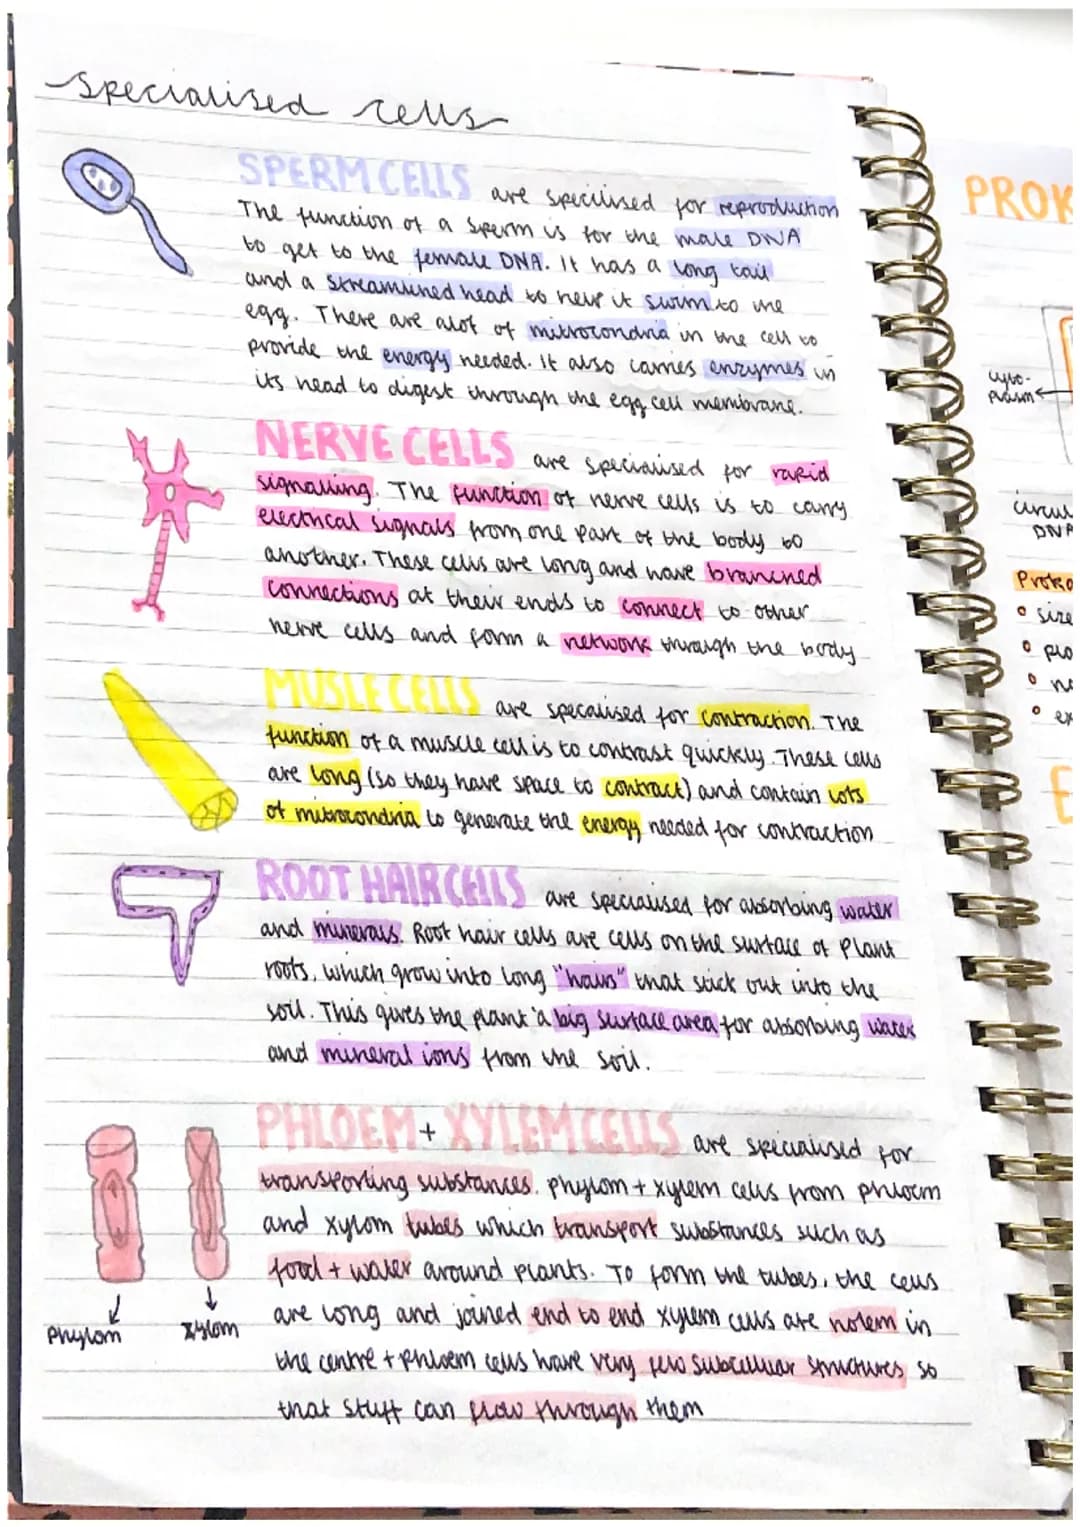 specialised cells
SPERM CELLS are specilised for reproduction
The function of a sperm is for the male DNA
to get to the female DNA. It has a long tail
and a streamlined head to help it swim to the
egg. There are alot of mitrocondria in the cell to
provide the energy needed. It also carries enzymes in
its head to digest through the egg cell membrane.
NERVE CELLS are specialised for rapid
signalling. The function of nerve cells is to carry
electrical signals from one part of the body to
another. These cells are long and have branched
connections at their ends to connect to other
nerve cells and form a network through the body
MUSLE CELLS are specalised for contraction. The
function of a muscle cell is to contrast quickly. These cells
are long (so they have space to contract) and contain lots
of mitrocondria to generate the energy needed for contraction
ROOT HAIR CELLS are specialised for absorbing water
and minerals. Root hair cells are cells on the surface of plant
roots, which grow into long "hairs" that stick out into the
soil. This gives the plant a big surface area for absorbing water
and mineral ions from the soil.
PHLOEM + XYLEM CELLS are specialised for
transporting substances. phylom + xylem cells from phloem
and xylom tubes which transport substances such as
food + water around plants. To form the tubes, the cells
are long and joined end to end xylem cells are holem in
the centre + phloem cells have very few subcelluar structures so
that stuff can flow through them
Phylom
Xylom
PROK
cyto-
plasm
circul
DNA
Proka
size
pro
no
ex
E